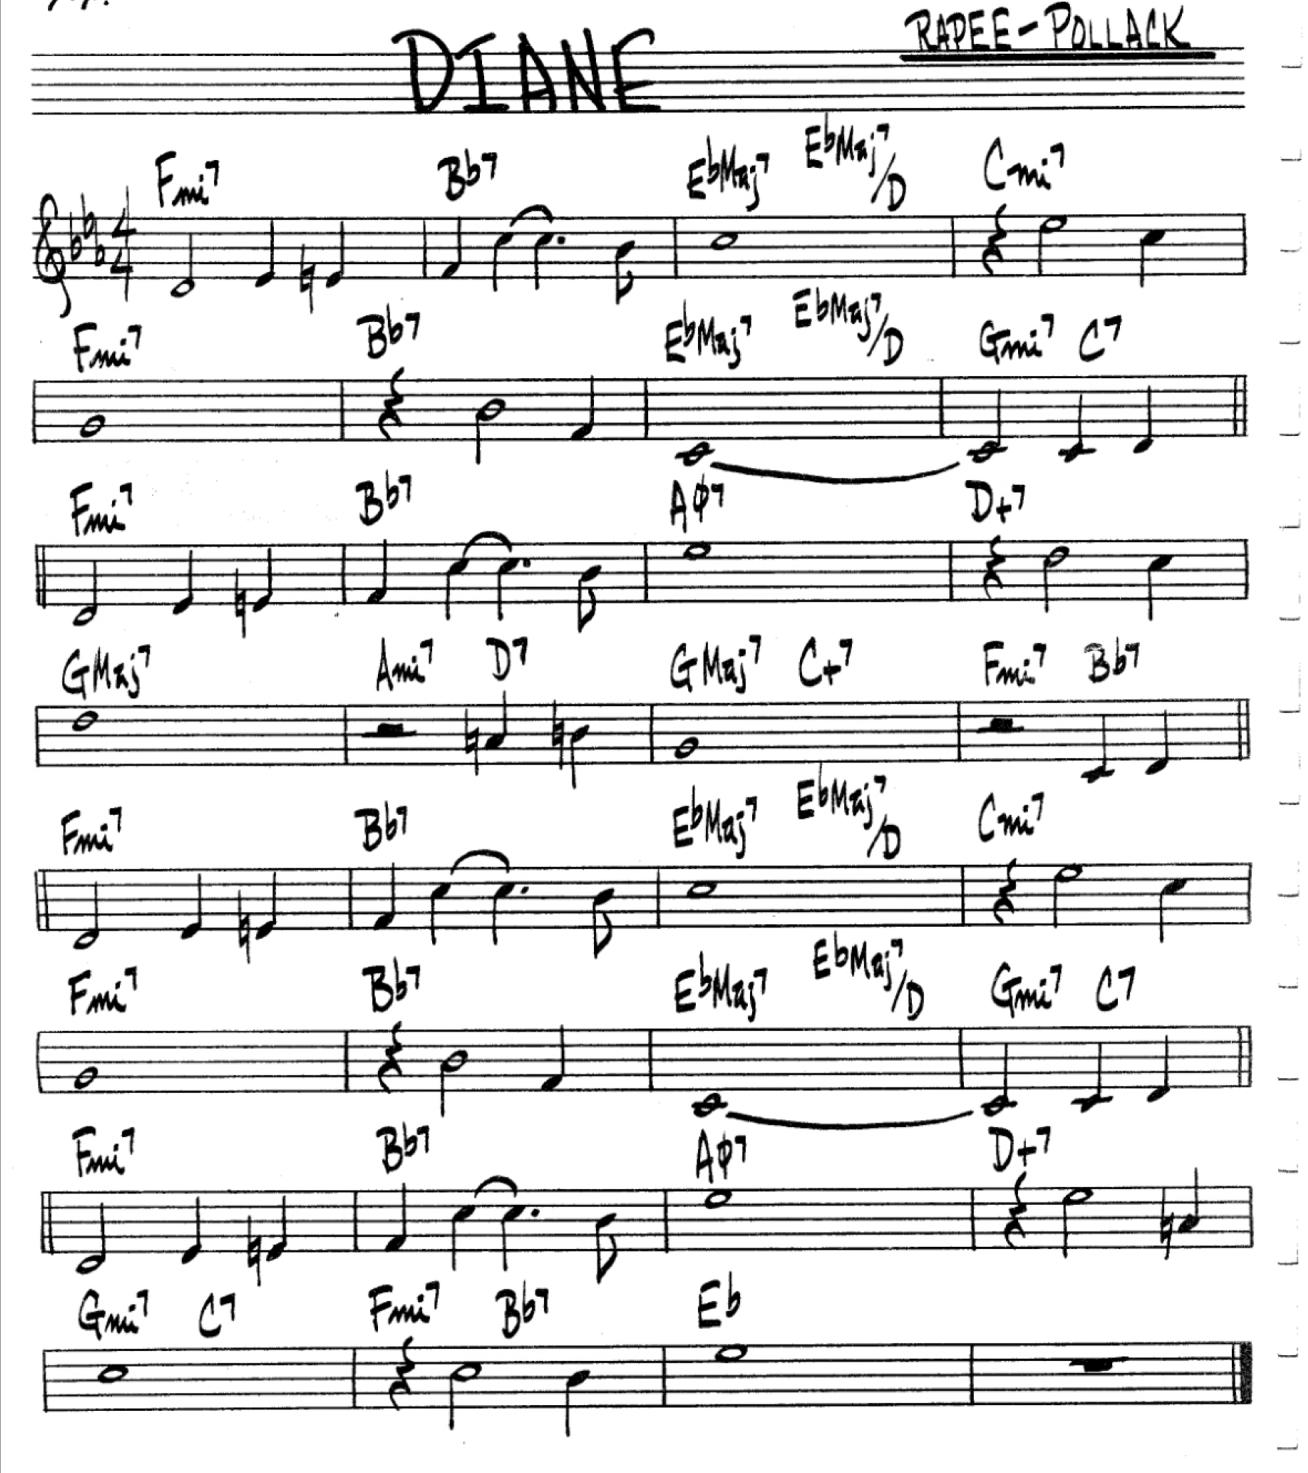 RAPEE-POLLACK
DIANE
Fmi7 Bb7 EbMaj7 EbMaj7/D Cmi7
4
4
Fmi7 Bb7 EbMaj7 EbMaj7/D Gmi7 C7
Fmi7 Bb7 AØ7 D+7
GMaj7 Ami7 D7 GMaj7 C+7 Fmi7 Bb7
Fmi7 Bb7 EbMaj7 EbMaj7/D Cmi7
Fmi7 Bb7 EbMaj7 EbMaj7/D Gmi7 C7
Fmi7 Bb7 AØ7 D+7
Gmi7 C7 Fmi7 Bb7 Eb